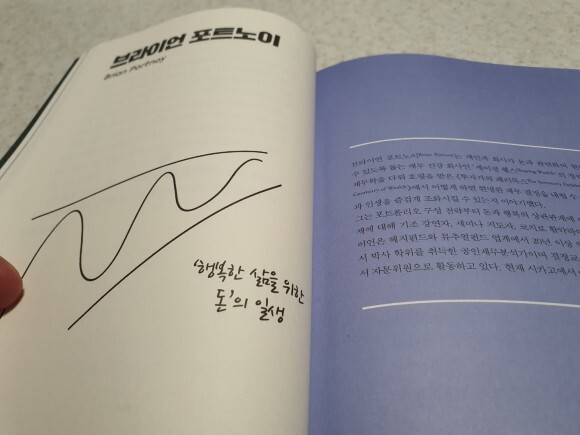 브라이언 포트노이
Brian Portnoy
'행복한 삶을 위한
돈'의 일생
브라이언 포트노이(Brian Portnoy)는 개인과 회사가 돈과
수 있도록 돕는 재무 건강 회사인
재무학을 다뤄 호평을 받은 《투자자의 패러독스
Geometry of Wealth)》에서 어떻게 하면 현명한 재무 결정을 내릴 수
과 인생을 즐겁게 조화시킬 수 있는지 이야기했다.
그는 포트폴리오 구성 전략부터 돈과 행복의 상관관계에
제에 대해 기조 강연자, 세미나 지도자, 코치로
이언은 헤지펀드와 뮤추얼펀드 업계에서 20년 이상
서 박사 학위를 취득한 공인재무분석가이며
서 자문위원으로 활동하고 있다. 현재 시카고에서